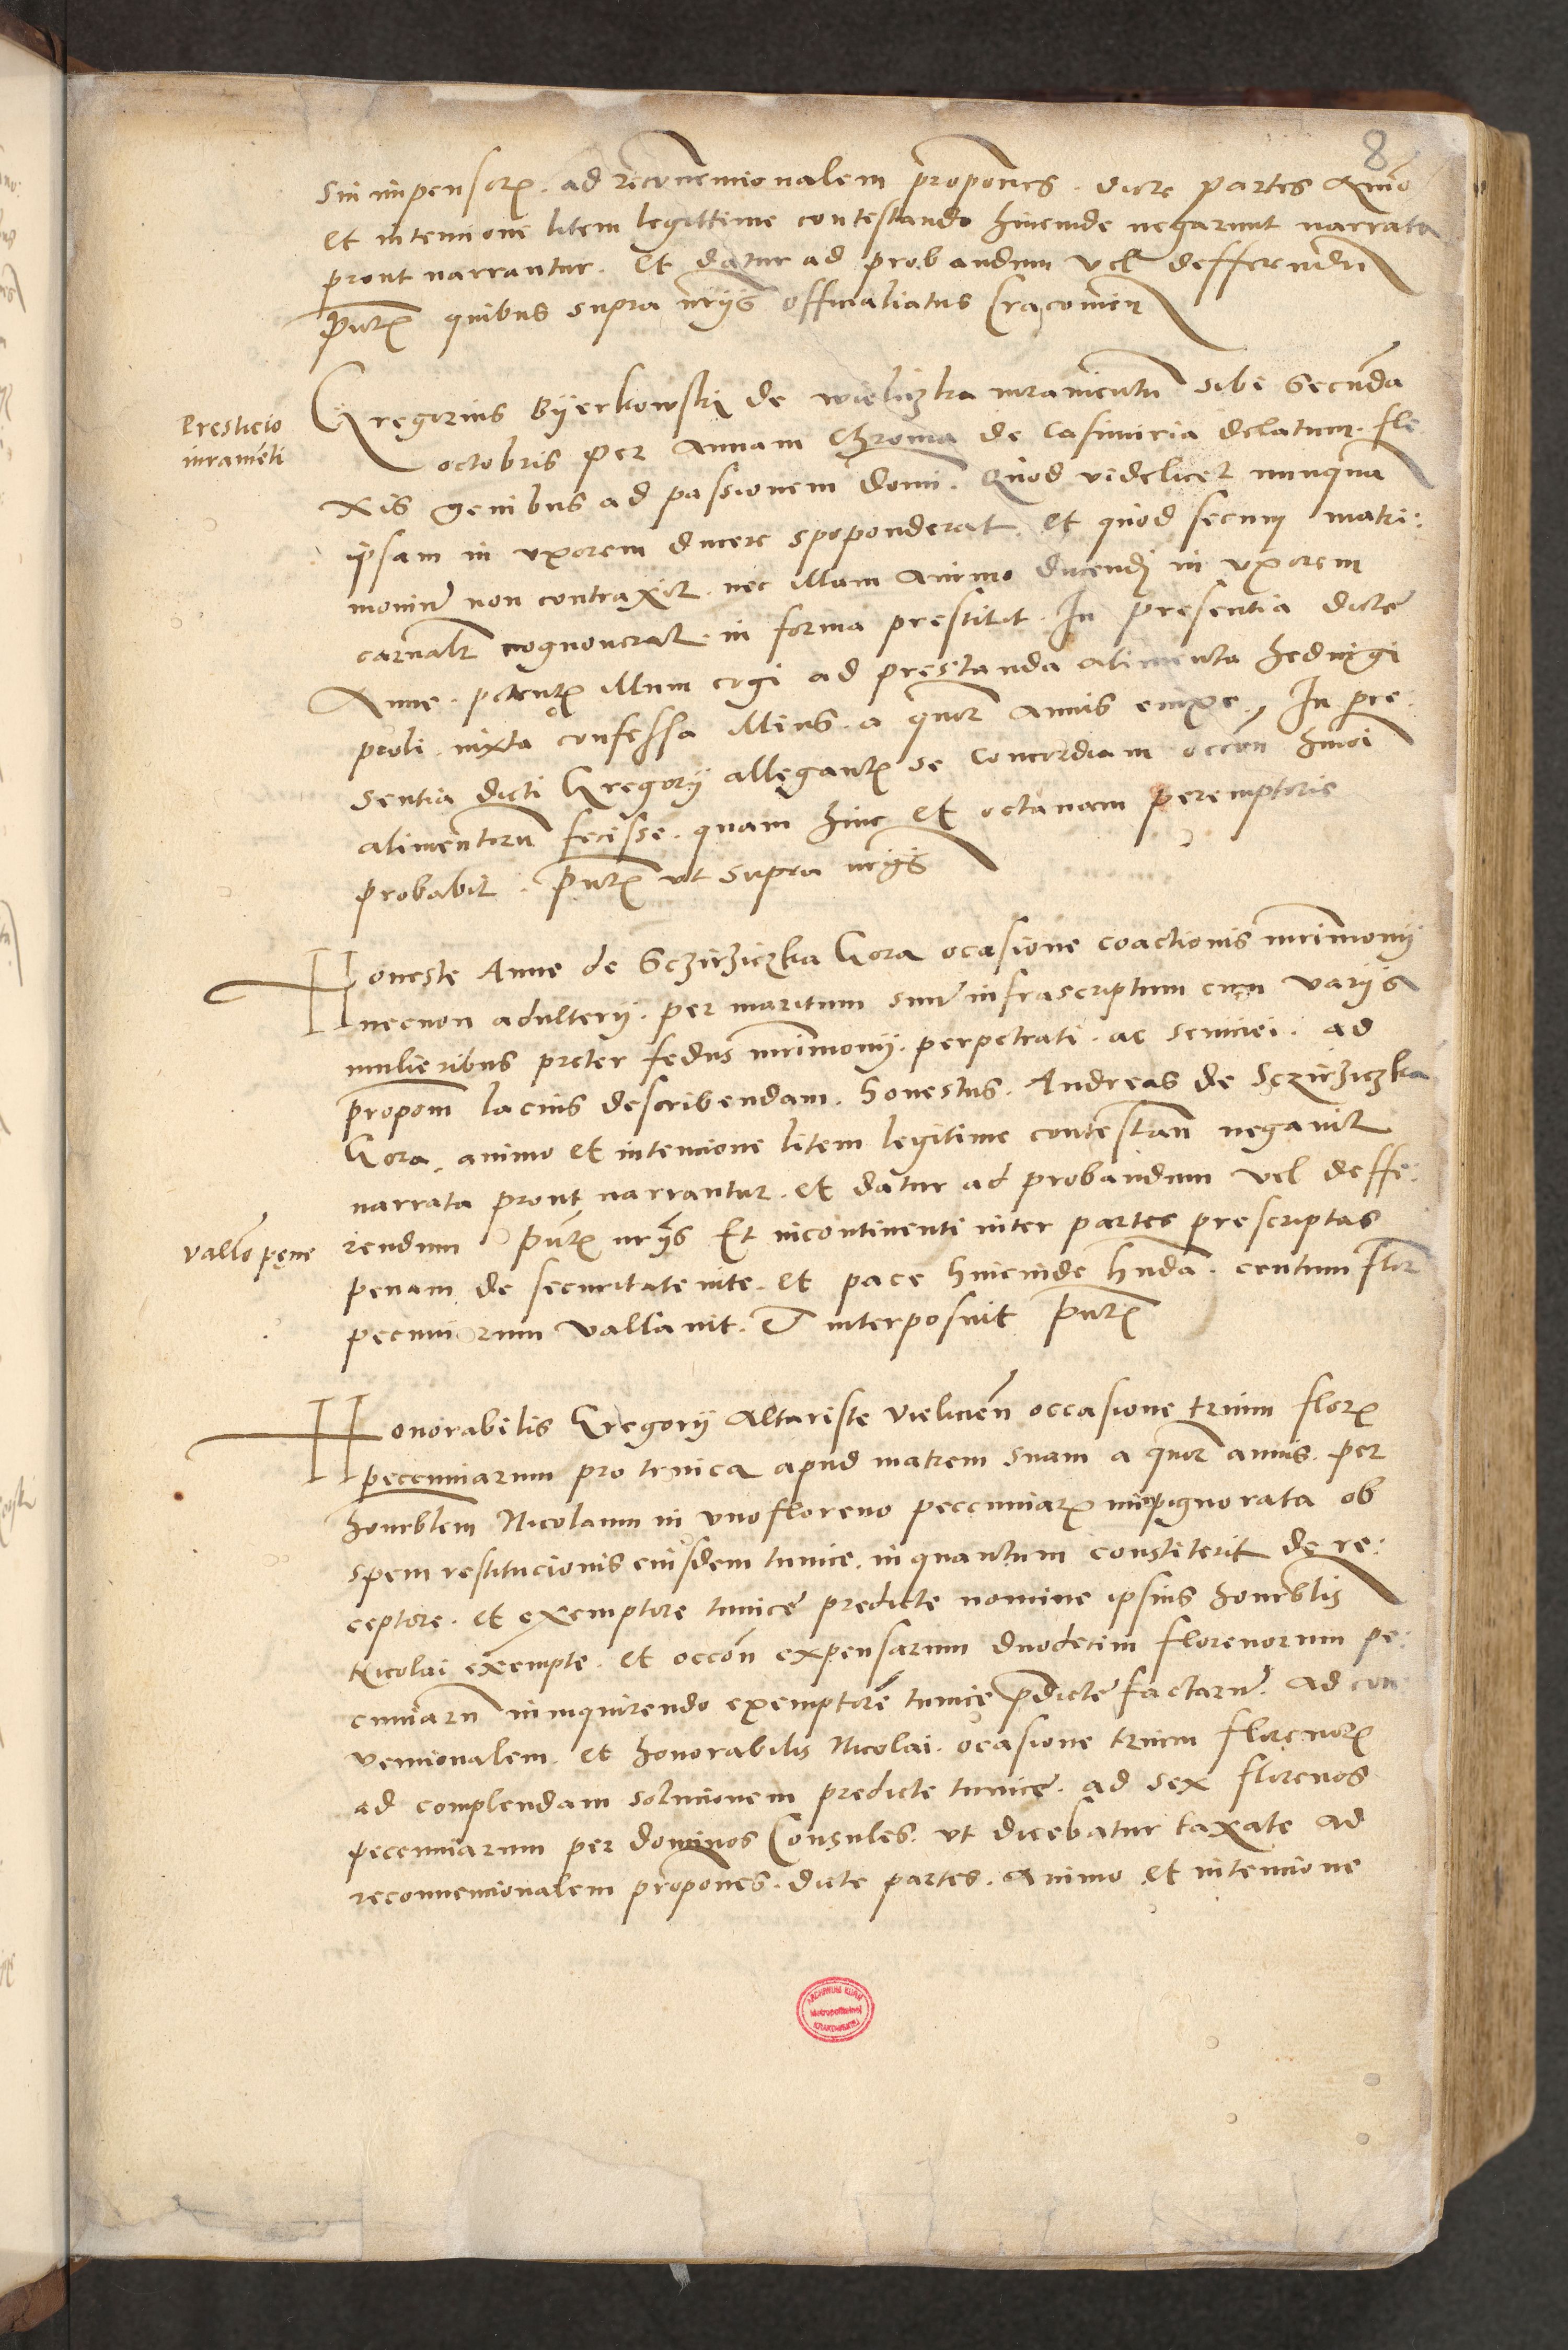 8
sui impensor(um). ad reconvencionalem propones. dicte partes animo
et intencione litem legittime contestando hincinde negarunt narrata
prout narrantur. et datur ad probandum vel defferendu
quibus supra officialiatus Cracovien
Prestacio
iuramenti
Gregorius Byerkowski de wieliczka iuramentu sibi Secunda
octobris per Annam Chroma de Casimiria delatum. fle
xis genibus ad passionem domi. Quod videlicet nunqua
ipsam in uxorem ducere spoponderat et quod secum matri:
moniu non contraxit. nec illam animo ducendi in uxorem
carnalr cognoverat. in forma prestitit. In presentia dicte
Anne. petentis illum cogi ad prestanda alimenta hedvigi
proli. iuxta confessa illius. a quor annis enixe, In pre:
sentia dicti Gregorii allegantis se concordiam occon hmoi
alimentoru fecisse. quam hinc et octavam peremptorie
probabit. ut supra
Honeste Anne de Sczirziczka Gora ocasione coactionis mrimonij
necnon adulterij. per maritum suu infrascriptum cum varijs
mulieribus preter fedus mrimonij. perpetrati. ac seviciei. ad
propom lacius describendam. honestus. Andreas de Sczirziczka
Gora. animo et intencione litem legitime contestan negavit
narrata prout narrantur. et datur ad probandum vel deffe:
vallo pene
rendum Et incontinenti inter partes prescriptas
penam de securitate vite. et pace hincinde hnda. centum flor
pecuniarum vallavit. & interposuit
Honorabilis Gregorij Altariste vieliciēn occasione trium flor
peccuniarum pro tunica apud matrem suam a quor annis. per
honrblem Nicolaum in uno floreno peccuniar inpignorata ob
spem restitucionis eiusdem tunice. in quantum constiterit de re:
ceptore. et exemptore tunice predicte nomine ipsius honrblis
Nicolai exempte. et occon expensarum duodecim florenorum pe:
cuniaru in inquirendo exemptore tunice pdicte factaru. ad con
vencionalem. et honorabilis Nicolai. ocasione trium florenor
ad complendam solucionem predicte tunice. ad sex florenos
peccuniarum per dominos Consules. ut dicebatur taxate ad
reconvencionalem propones. dicte partes. animo et intencione
ARCHIWUM KURII
Metropolitalnej
KRAKOWSKIEJ